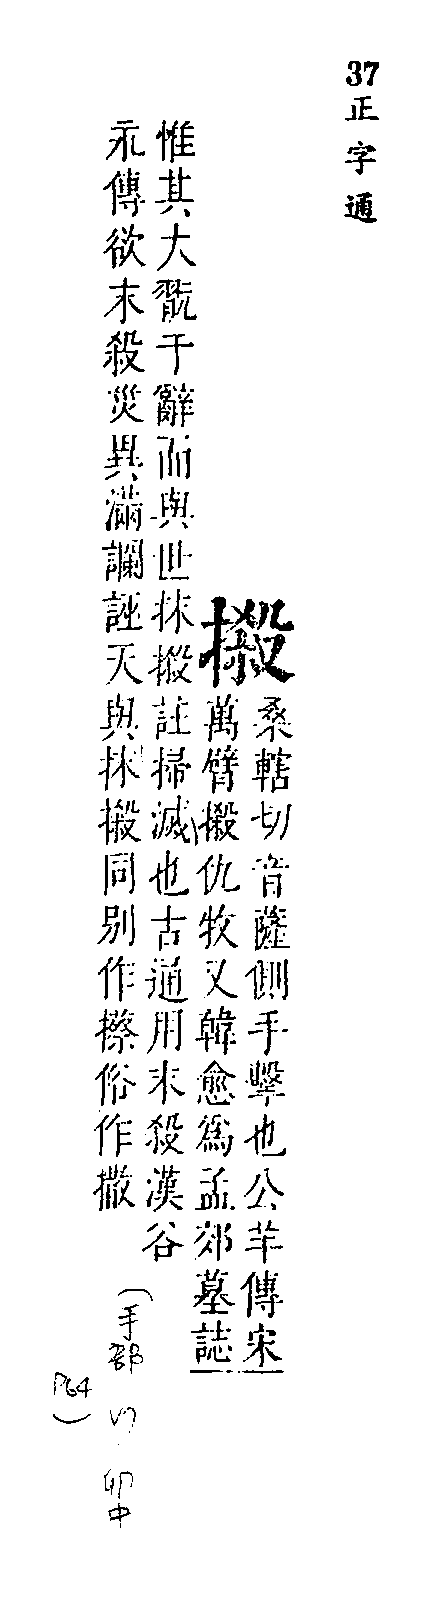 37正字通
摋
桑轄切音薩側手擊也公羊傳宋
萬臂摋仇牧又韓愈爲孟郊墓誌
惟其大翫于辭而與世抹摋註掃滅也古通用末殺漢谷
永傳欲末殺災異滿讕誣天與抹摋同別作攃俗作撒
(手部 卯中
P64)